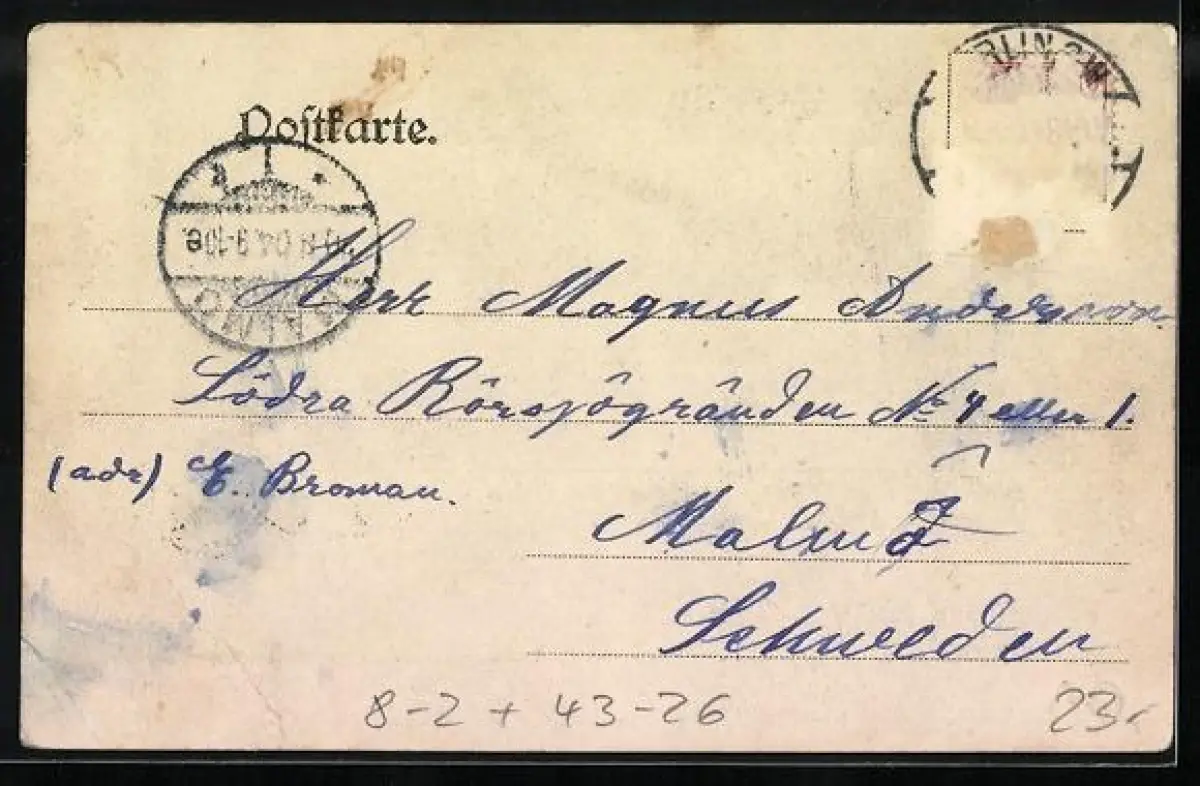 Postkarte.
BERLIN SW
Herr Magnus Andersson
Södra Rörsjögränden No 4 eller 1.
(adr) E. Broman.
Malmö
Schweden
8-2 + 43-26
23